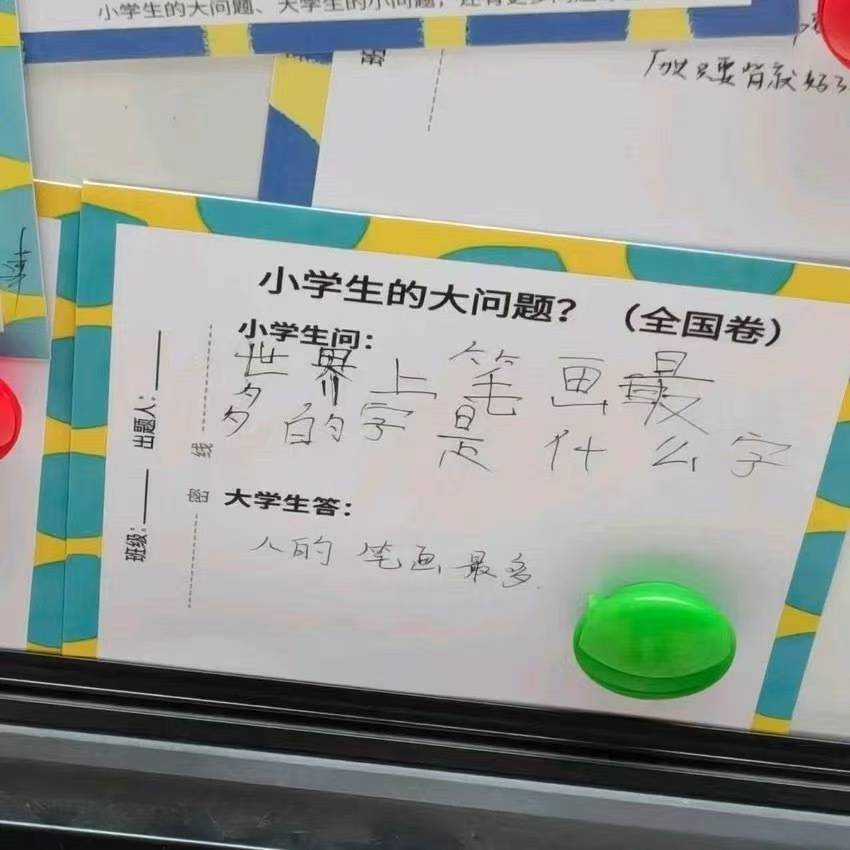 小学生的大问题、大学生的小问题，还有更多问题
只要背就好了
小学生的大问题？（全国卷）
小学生问：
世界上笔画最多
的字是什么字
大学生答：
人的笔画最多.
班级： 出题人：
密 线